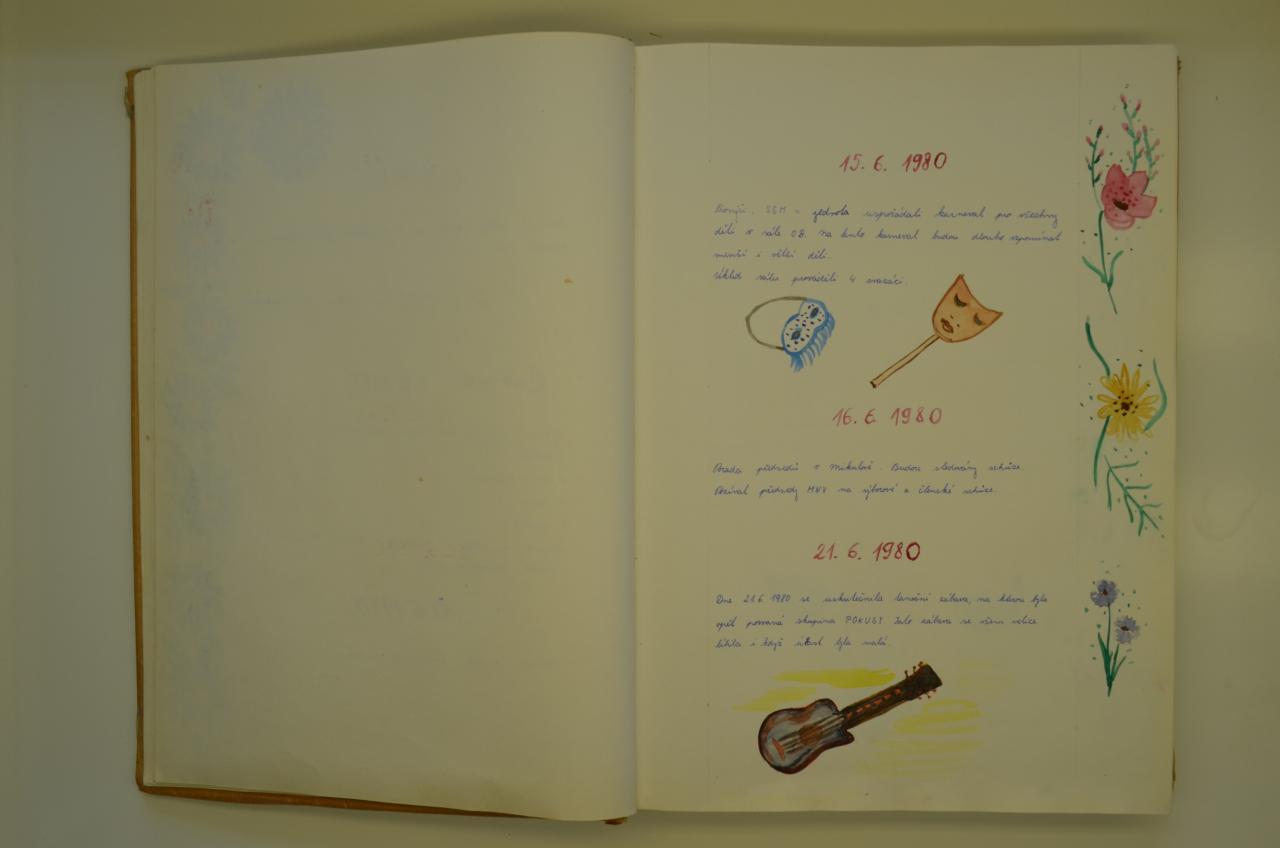 15. 6. 1980
SSM - jednota uspořádali karneval pro všechny
děti v sále OB. Na tento karneval budou dlouho vzpomínat
menší i větší děti.
Úklid sálu prováděli 4 svazáci.
16. 6 1980
Porada předsedů v Mikulově. Budou sledovány schůze.
Pozívat předsedy MNV na výborové a členské schůze.
21. 6. 1980
Dne 21.6 1980 se uskutečnila taneční zábava, na kterou byla
opět pozvaná skupina POKUSY. Tato zábava se všem velice
líbila i když účast byla malá.